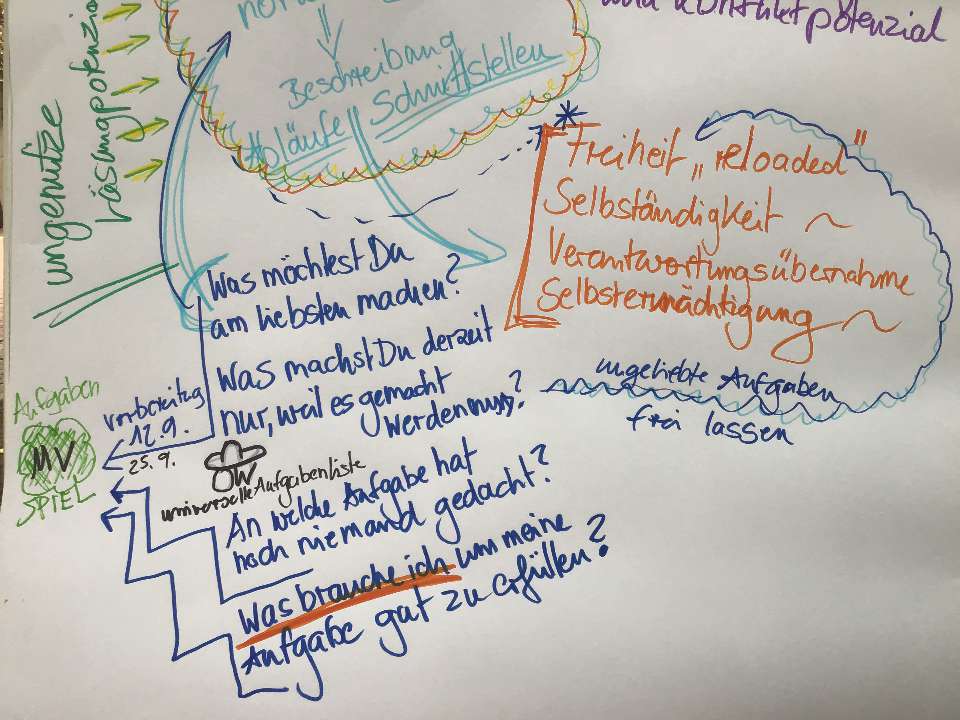 und Konfliktpotenzial
Beschreibung
Abläufe Schnittstellen
ungenütze
Lösungpotenzial
Freiheit „reloaded"
Selbständigkeit ~
Verantwortungsübernahme
Selbstermächtigung ~
Was möchtest Du
am liebsten machen?
Was machst Du derzeit
nur, weil es gemacht
werden muss?
ungeliebte Aufgaben
frei lassen
Aufgaben
MV
SPIEL
Vorbereitung
12.9.
25.9.
universelle Aufgabenliste
An welche Aufgabe hat
noch niemand gedacht?
Was brauche ich um meine
Aufgabe gut zu erfüllen?